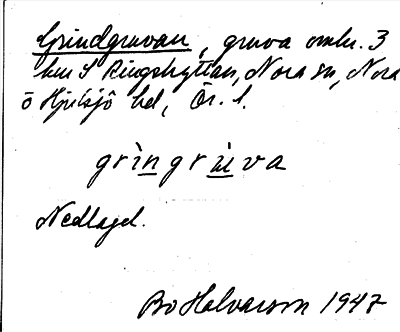 Grindgruvan, gruva omkr. 3
km S Ringshyttan, Nora sn, Nora
o Hjulsjö bd, Ör. l.
grìngrùva
Nedlagd.
Bo Halvarson 1947